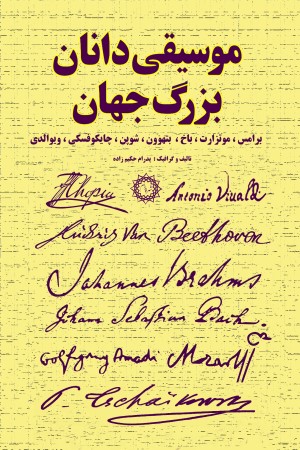 موسیقی دانان
بزرگ جهان
برامس ، موتزارت ، باخ ، بتهوون ، شوپن ، چایکوفسکی ، ویوالدی
تالیف و گرافیک : پدرام حکیم زاده
Chopin Antonio Vivaldi
Ludwig Van Beethoven
Johannes Brahms
Johann Sebastian Bach
Wolfgang Amadi Mozart
P. Tschaikowsky